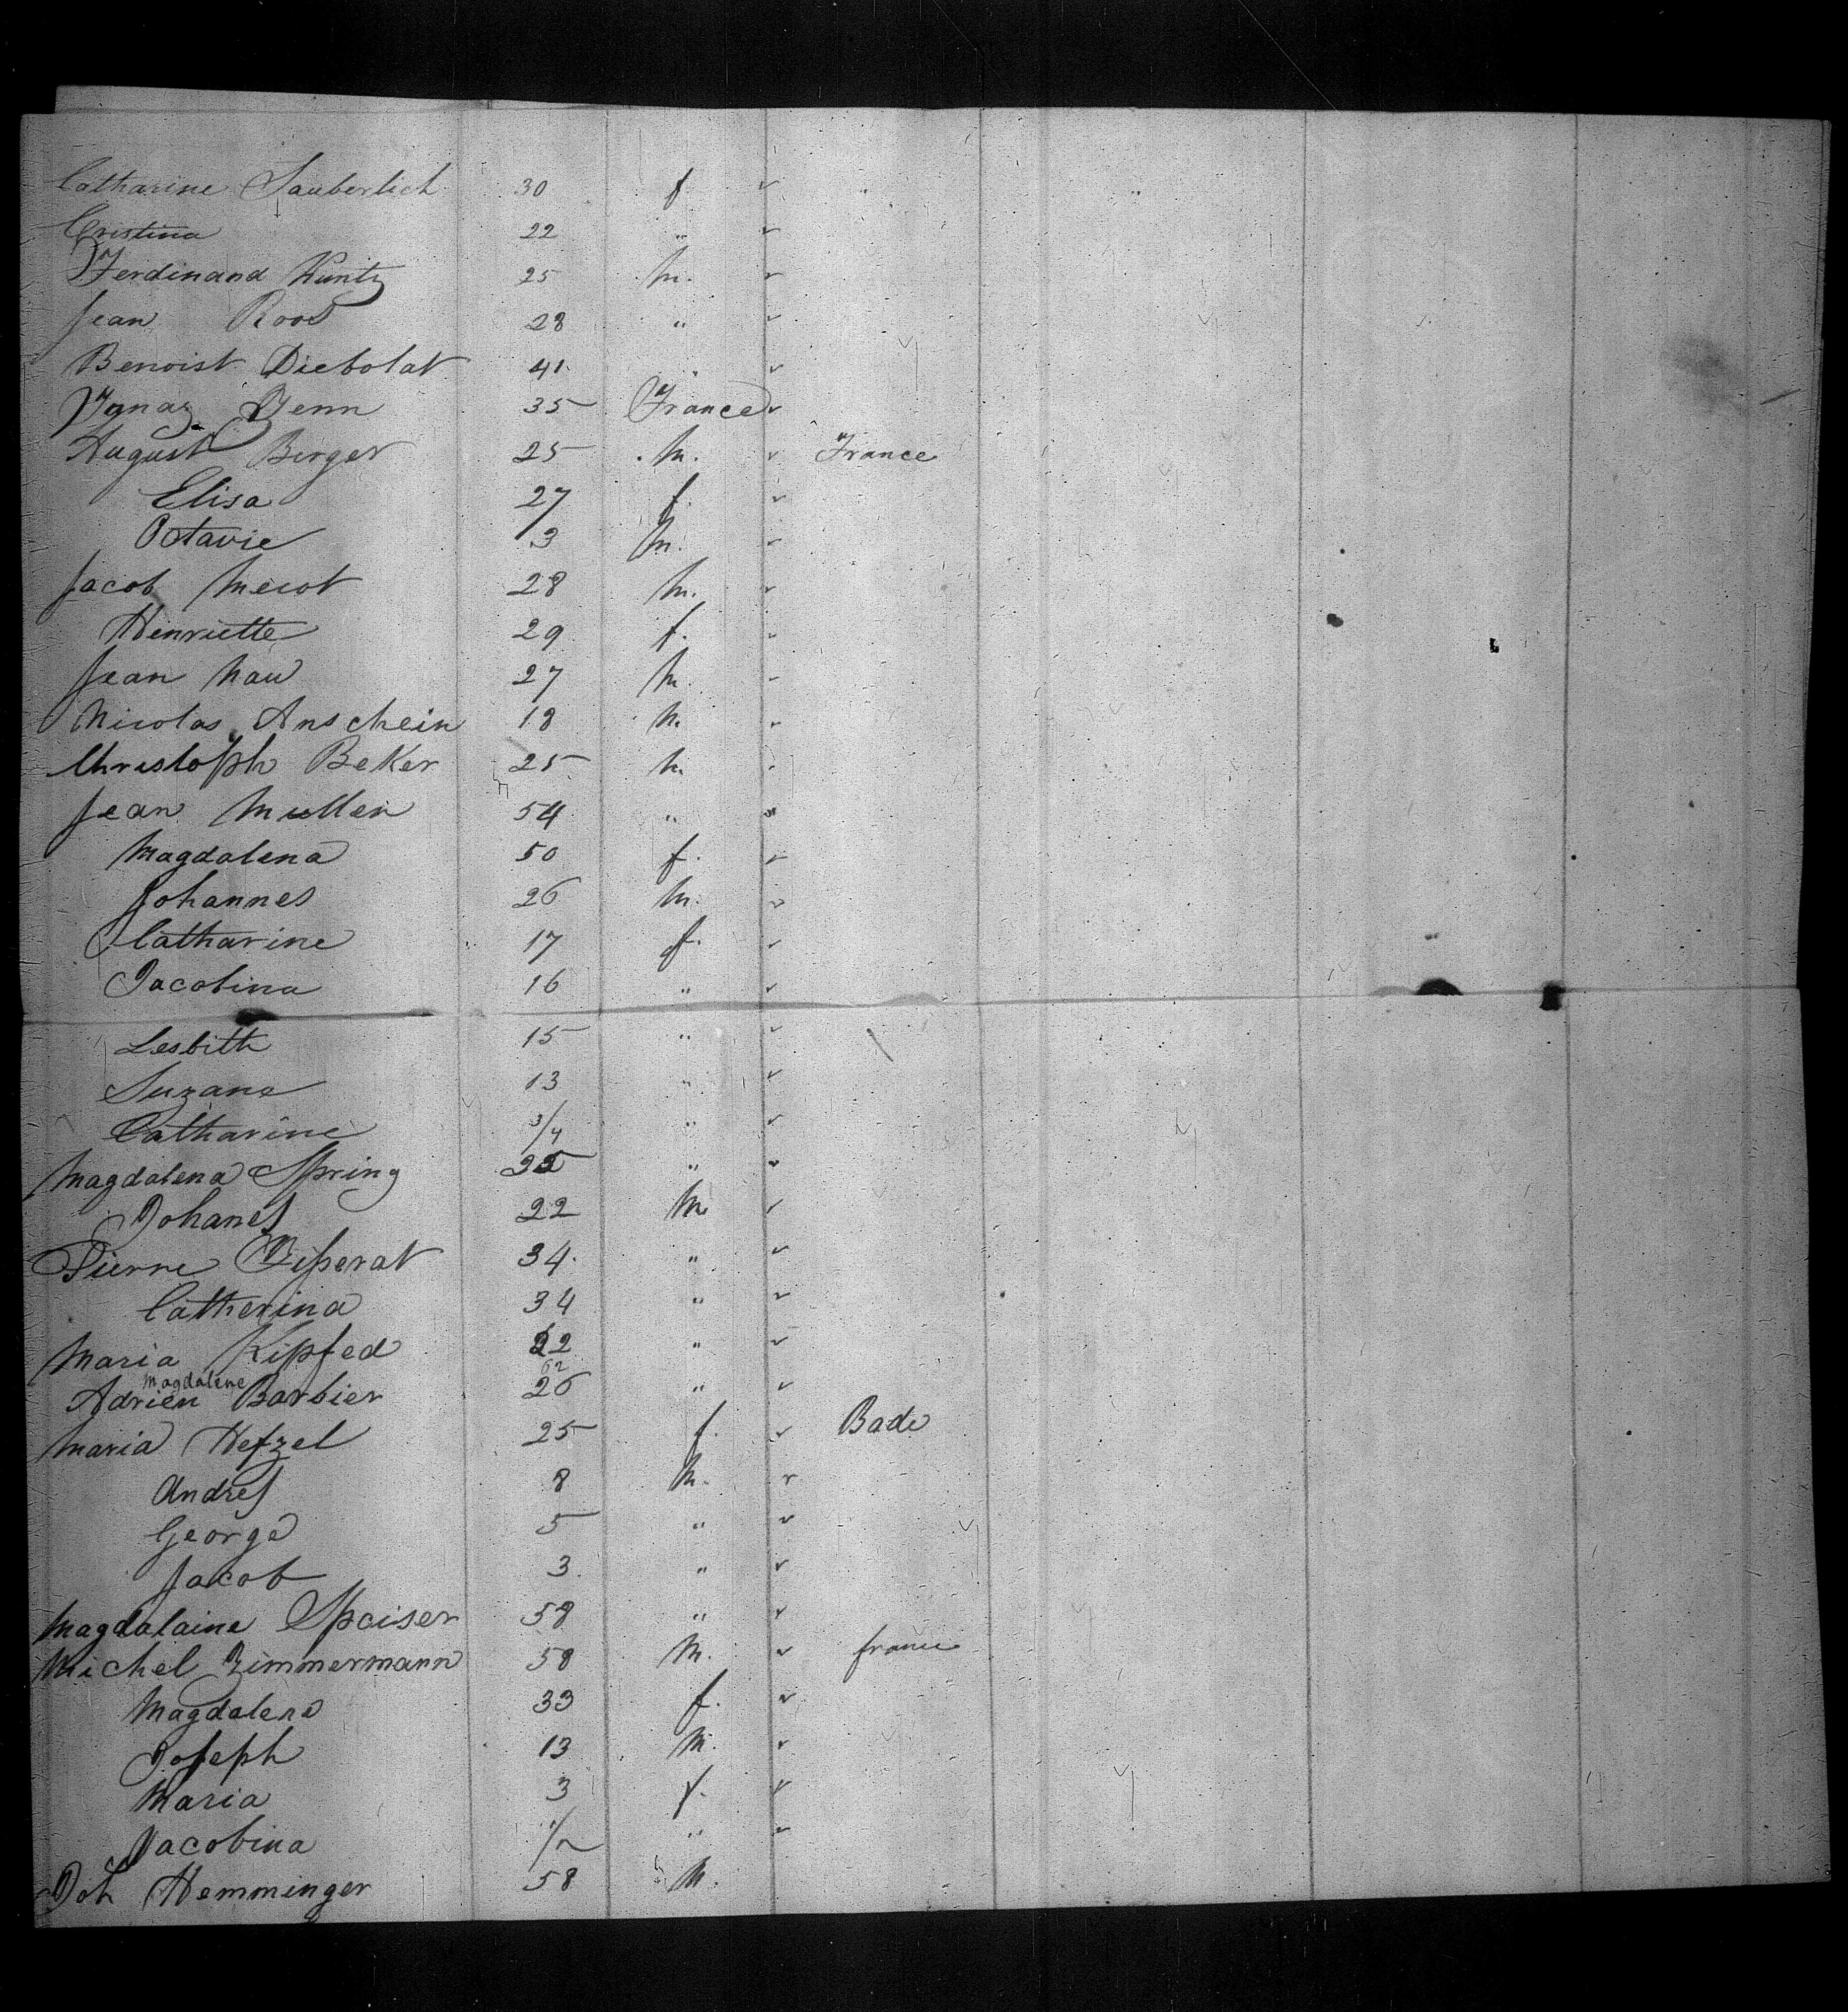 Catharine Sauberlich 30 f " "
Cristina 22 "
Ferdinand Kuntz 25 M.
Jean Rood 28 "
Benoist Diebolat 41 "
Ignaz Zenn 35 France
August Birger 25 M. France
Elisa 27 f.
Octavie 3 M.
Jacob Meiot 28 M.
Henriette 29 f.
Jean Nau 27 M.
Nicolas Anschein 18 M.
Christoph Beker 25 M.
Jean Muller 54 "
Magdalena 50 f.
Johannes 26 M.
Catharine 17 f.
Jacobina 16 "
Lesbith 15 "
Suzane 13 "
Catharine 3/4 "
Magdalena Spring 25 "
Johanes 22 M.
Pierre 34 "
Catherina 34 "
Maria Kipfed 22 "
Magdalene 62
Adrien Barbier 26 "
Maria Hetzel 25 f. Bade
Andres 8 M.
George 5 "
Jacob 3 "
Magdalaine Speiser 58 "
Michel Zimmermann 58 M. france
Magdalene 33 f.
Joseph 13 M.
Maria 3 f.
Jacobina 1/2 "
Joh Hemminger 58 M.